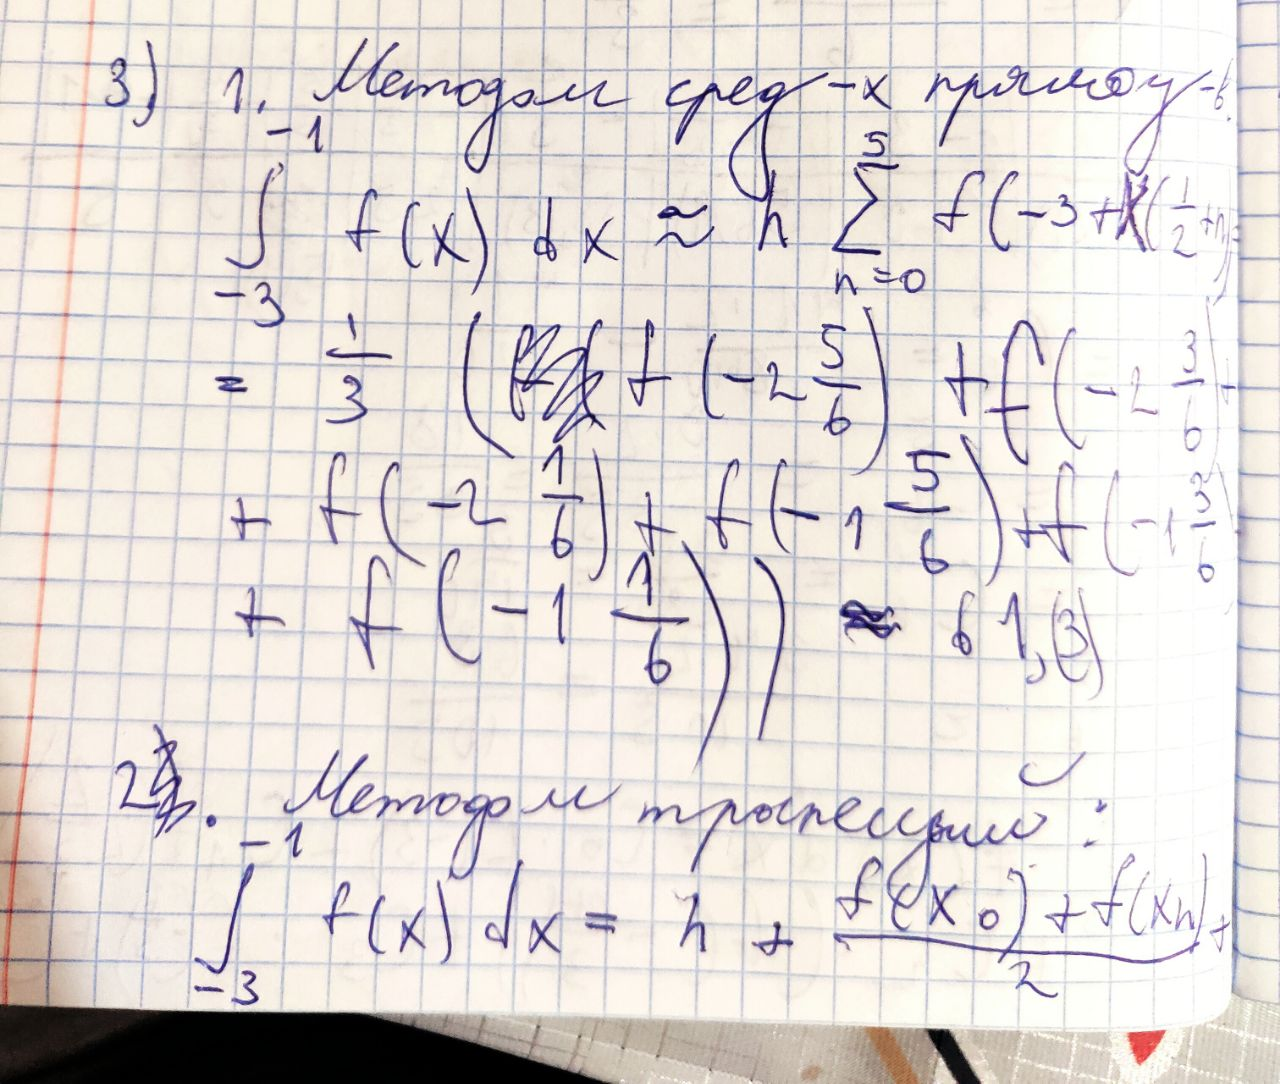 3) 1. Методом сред-х прямоу-в.
∫_{-3}^{-1} f(x) dx ≈ h ∑_{n=0}^{5} f(-3 + (1/2 + n
= 1/3 ( f(-2 5/6) + f(-2 3/6) +
+ f(-2 1/6) + f(-1 5/6) + f(-1 3/6)
+ f(-1 1/6)) ≈ 61,(3)
2. Методом трапеций:
∫_{-3}^{-1} f(x) dx = h + (f(x_0) + f(x_n))/2 +